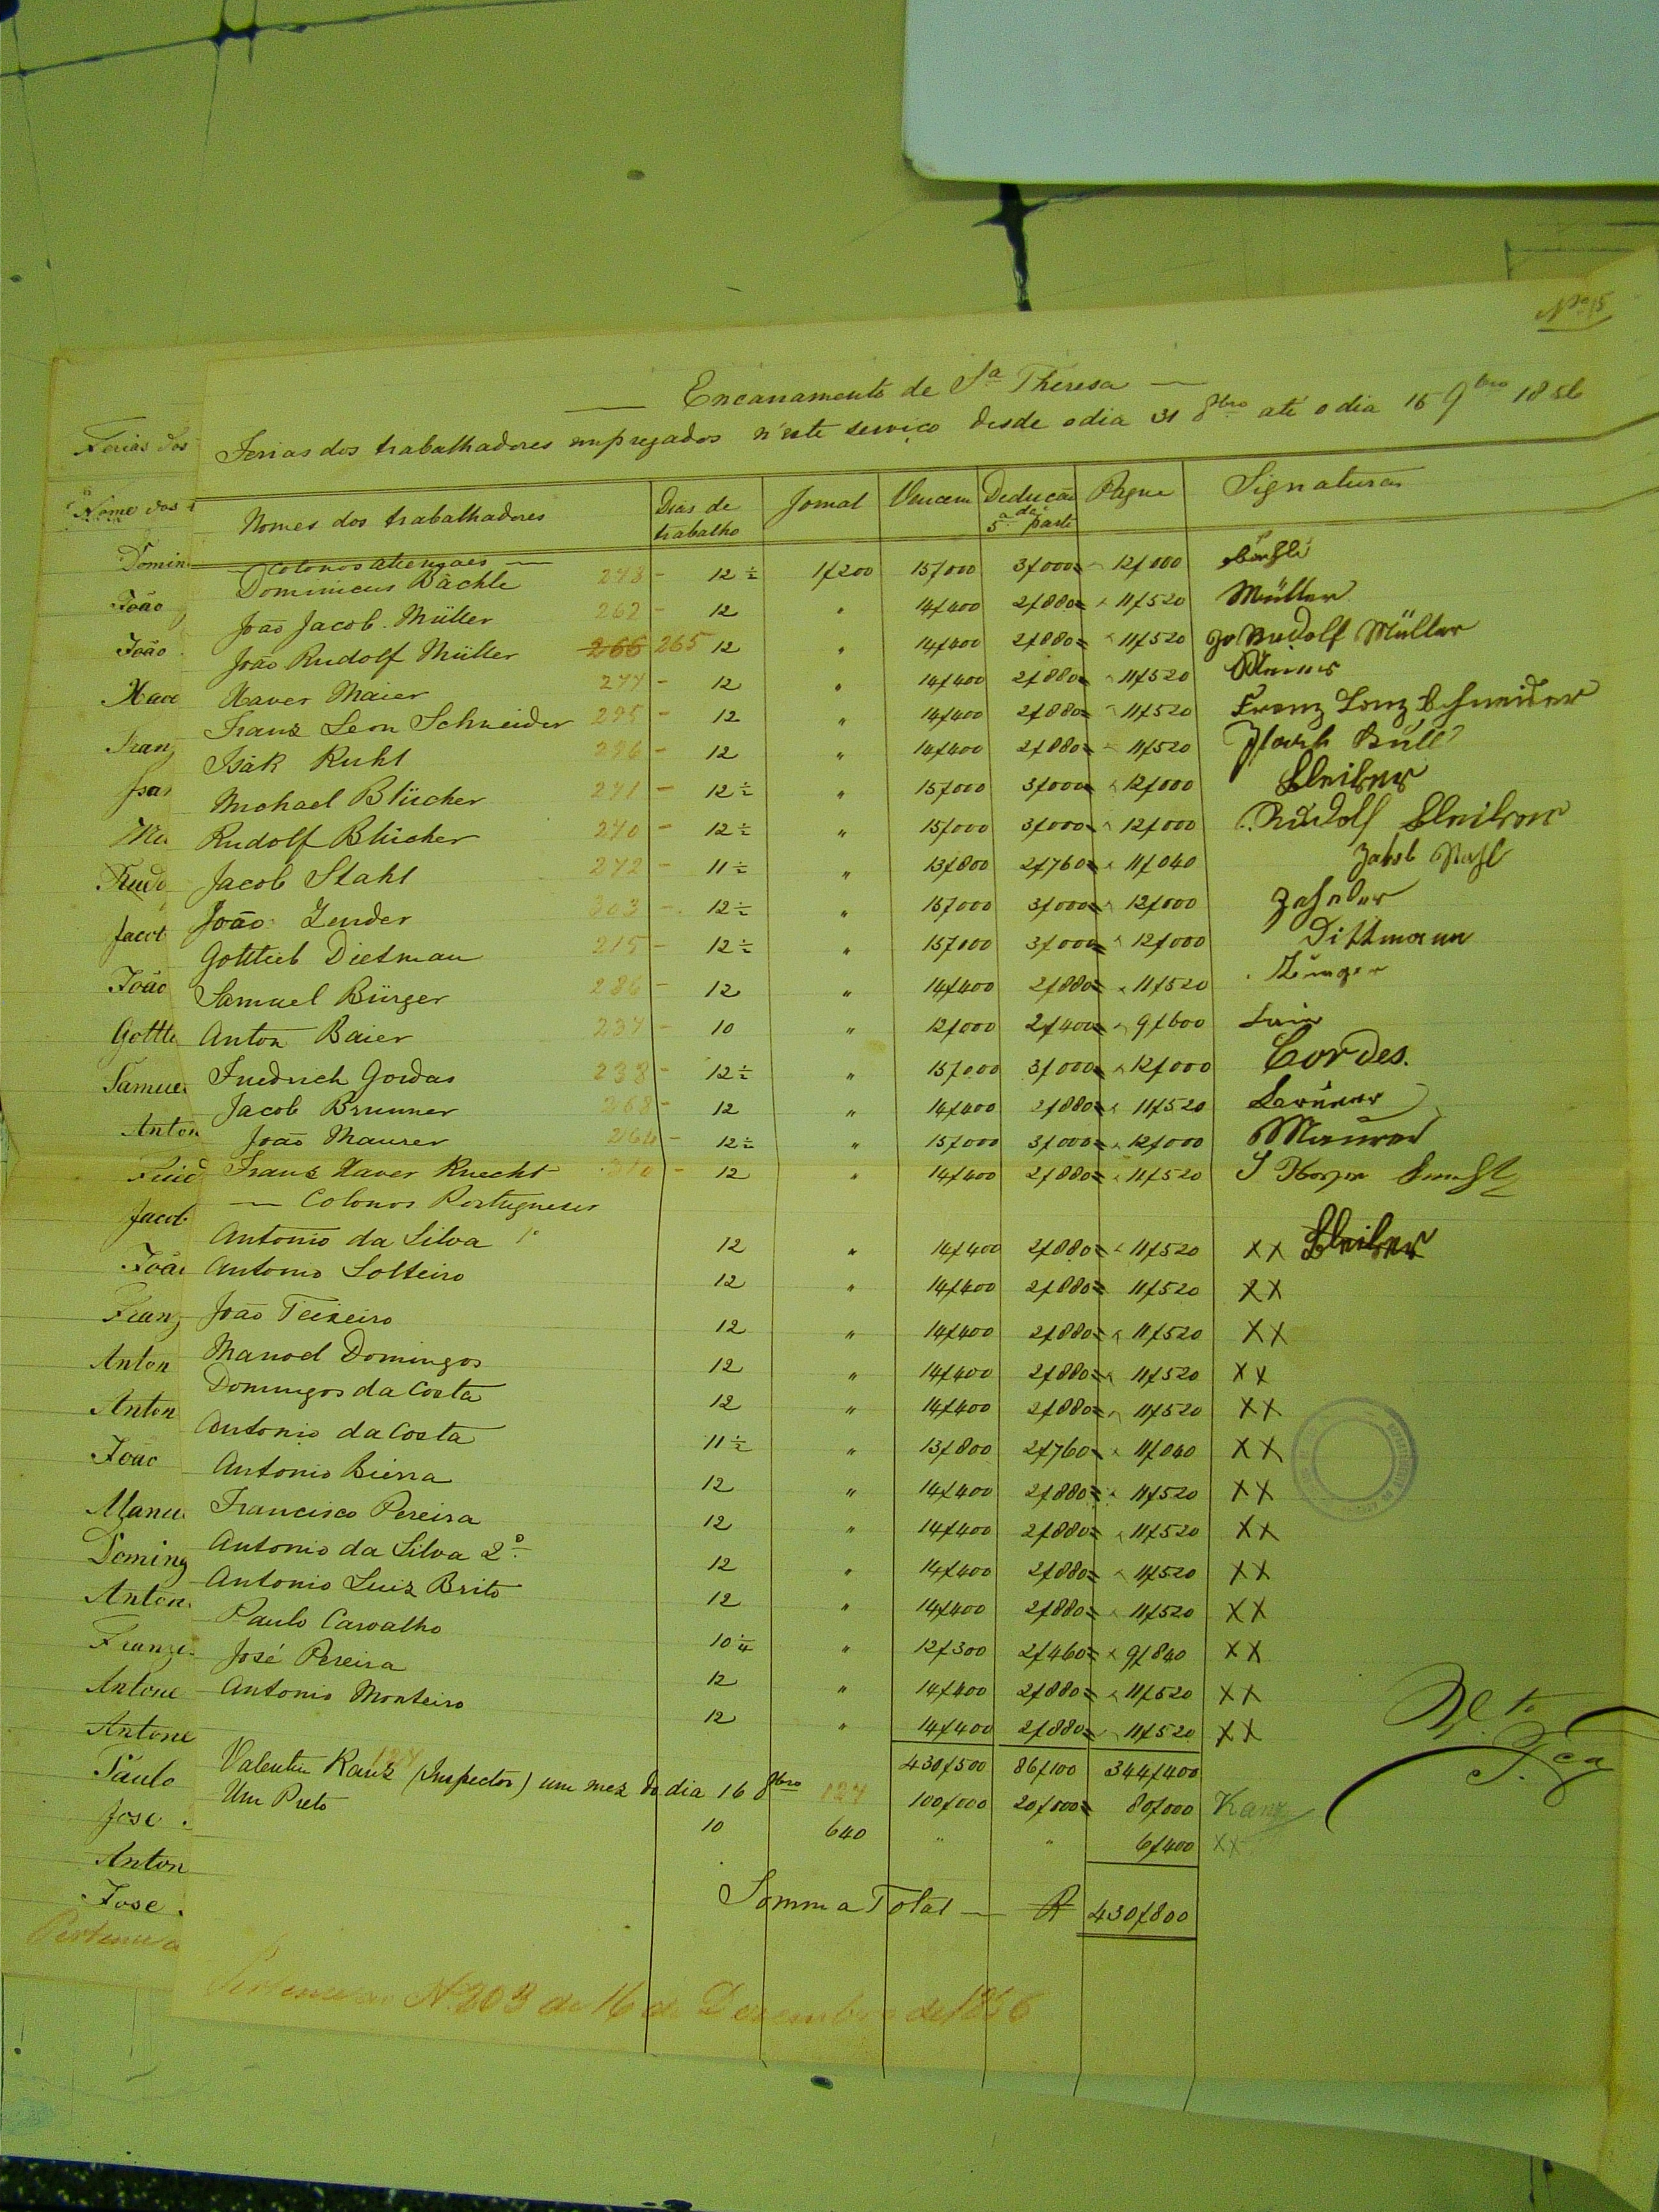 Encanamento de Sa Theresa
Ferias dos trabalhadores empregados n'este serviço desde o dia 31 8bro até o dia 15 9bro 1856
Nomes dos trabalhadores | Dias de trabalho | Jornal | Vencem | Dedução da 5a parte | Pague | Signaturas
Colonos alemaes
Dominicus Bächle 278 - 12 ½ 1$200 15$000 3$000 = 12$000 Bächle
João Jacob Müller 262 - 12 " 14$400 2$880 = 11$520 Müller
João Rudolf Müller 266 265 12 " 14$400 2$880 = 11$520 Rudolf Müller
Xaver Maier 277 - 12 " 14$400 2$880 = 11$520
Franz Leon Schneider 295 - 12 " 14$400 2$880 = 11$520 Franz Lonz Schneider
Isäk Ruhl 296 - 12 " 14$400 2$880 = 11$520
Michael Blücher 271 - 12 ½ " 15$000 3$000 = 12$000 Bleiker
Rudolf Blücher 270 - 12 ½ " 15$000 3$000 = 12$000 Rudolf Bleiker
Jacob Stahl 272 - 11 ½ " 13$800 2$760 = 11$040 Jakob Stahl
João Zender 303 - 12 ½ " 15$000 3$000 = 12$000 Zahnder
Gottlieb Dietman 215 - 12 ½ " 15$000 3$000 = 12$000 Dittmann
Samuel Bürger 286 - 12 " 14$400 2$880 = 11$520
Anton Baier 237 - 10 " 12$000 2$400 = 9$600
Friedrich Gordas 238 - 12 ½ " 15$000 3$000 = 12$000 Cordes.
Jacob Brunner 268 - 12 " 14$400 2$880 = 11$520 Brunner
João Maurer 264 - 12 ½ " 15$000 3$000 = 12$000 Maurer
Franz Xaver Knecht 310 - 12 " 14$400 2$880 = 11$520
Colonos Portugueses
Antonio da Silva 1º 12 " 14$400 2$880 = 11$520 XX Bleiker
Antonio Solteiro 12 " 14$400 2$880 = 11$520 XX
João Teixeiro 12 " 14$400 2$880 = 11$520 XX
Manoel Domingos 12 " 14$400 2$880 = 11$520 XX
Domingos da Costa 12 " 14$400 2$880 = 11$520 XX
Antonio da Costa 11 ½ " 13$800 2$760 = 11$040 XX
Antonio Bierra 12 " 14$400 2$880 = 11$520 XX
Francisco Pereira 12 " 14$400 2$880 = 11$520 XX
Antonio da Silva 2º 12 " 14$400 2$880 = 11$520 XX
Antonio Luiz Brito 12 " 14$400 2$880 = 11$520 XX
Paulo Carvalho 10 ¼ " 12$300 2$460 = 9$840 XX
José Pereira 12 " 14$400 2$880 = 11$520 XX
Antonio Monteiro 12 " 14$400 2$880 = 11$520 XX
430$500 86$100 344$400
Valentin Kanz (Inspector) um mez do dia 16 8bro 127 100$000 20$000 = 80$000 Kanz
Um Preto 10 640 " " 6$400 XX
Somma Total — R 430$800
Pertence ao N. 203 de 16 de Dezembro de 1856
Ferias dos
Nome dos t
Domin
João
João
Xave
Franz
Isa
Mi
Rudo
Jacob
João
Gottli
Samue
Anton
Fried
Jacob
Joã
Franz
Anton
Anton
João
Manu
Doming
Anton
Franz
Antone
Antone
Paulo
Jose
Anton
Jose
Pertence a